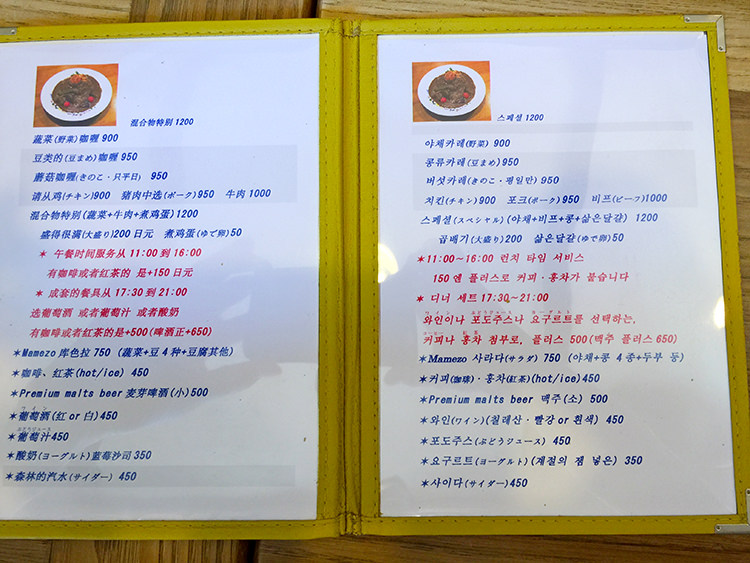 混合物特别 1200
蔬菜(野菜)咖喱 900
豆类的(豆まめ)咖喱 950
蘑菇咖喱(きのこ・只平日) 950
请从鸡(チキン)900 猪肉中选(ポーク)950 牛肉 1000
混合物特别(蔬菜+牛肉+煮鸡蛋)1200
盛得很满(大盛り)200 日元 煮鸡蛋(ゆで卵)50
* 午餐时间服务从 11:00 到 16:00
有咖啡或者红茶的 是+150 日元
* 成套的餐具从 17:30 到 21:00
选葡萄酒 或者葡萄汁 或者酸奶
有咖啡或者红茶的是+500(啤酒正+650)
*Mamezo 库色拉 750 (蔬菜+豆 4 种+豆腐其他)
*咖啡、红茶(hot/ice) 450
*Premium malts beer 麦芽啤酒(小)500
ワイン
*葡萄酒(红 or 白)450
ぶどうジュース
*葡萄汁450
*酸奶(ヨーグルト)蓝莓沙司 350
*森林的汽水(サイダー) 450
스페셜 1200
야채카레(野菜) 900
콩류카레(豆まめ)950
버섯카레(きのこ・평일만) 950
치킨(チキン)900 포크(ポーク)950 비프(ビーフ)1000
스페셜(スペシャル)(야채+비프+콩+삶은달걀) 1200
곱배기(大盛り)200 삶은달걀(ゆで卵)50
*11:00~16:00 런치 타임 서비스
150 엔 플러스로 커피・홍차가 붙습니다
* 디너 세트 17:30~21:00
ワイン ぶどうジュース ヨーグルト
와인이나 포도주스나 요구르트를 선택하는,
コーヒー 紅茶
커피나 홍차 첨부로, 플러스 500(맥주 플러스 650)
*Mamezo 사라다(サラダ) 750 (야채+콩 4 종+두부 등)
*커피(珈琲)・홍차(紅茶)(hot/ice)450
*Premium malts beer 맥주(소) 500
*와인(ワイン)(칠레산・빨강 or 흰색) 450
*포도주스(ぶどうジュース) 450
*요구르트(ヨーグルト)(계절의 잼 넣은) 350
*사이다(サイダー)450